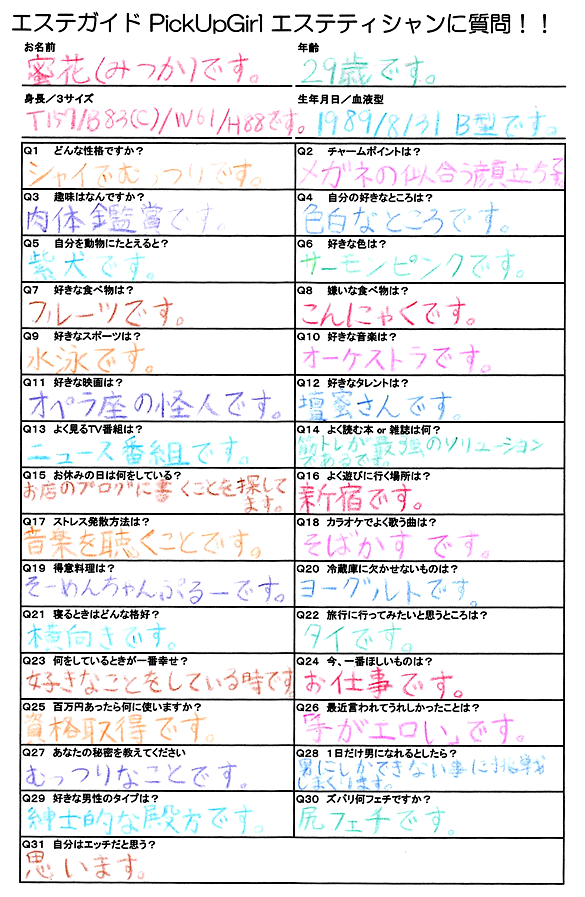 エステガイド PickUpGirl エステティシャンに質問！！
お名前
蜜花(みつか)です。
年齢
29歳です。
身長／3サイズ
T157/B83(C)/W61/H88です。
生年月日／血液型
1989/8/31 B型です。
Q1 どんな性格ですか？
シャイでむっつりです。
Q2 チャームポイントは？
メガネの似合う顔立ち
Q3 趣味はなんですか？
肉体鑑賞です。
Q4 自分の好きなところは？
色白なところです。
Q5 自分を動物にたとえると？
柴犬です。
Q6 好きな色は？
サーモンピンクです。
Q7 好きな食べ物は？
フルーツです。
Q8 嫌いな食べ物は？
こんにゃくです。
Q9 好きなスポーツは？
水泳です。
Q10 好きな音楽は？
オーケストラです。
Q11 好きな映画は？
オペラ座の怪人です。
Q12 好きなタレントは？
壇蜜さんです。
Q13 よく見るTV番組は？
ニュース番組です。
Q14 よく読む本 or 雑誌は何？
筋トレが最強のソリューション
であるです。
Q15 お休みの日は何をしている？
お店のブログに書くことを探して
ます。
Q16 よく遊びに行く場所は？
新宿です。
Q17 ストレス発散方法は？
音楽を聴くことです。
Q18 カラオケでよく歌う曲は？
そばかす です。
Q19 得意料理は？
そーめんちゃんぷるーです。
Q20 冷蔵庫に欠かせないものは？
ヨーグルトです。
Q21 寝るときはどんな格好？
横向きです。
Q22 旅行に行ってみたいと思うところは？
タイです。
Q23 何をしているときが一番幸せ？
好きなことをしている時です
Q24 今、一番ほしいものは？
お仕事です。
Q25 百万円あったら何に使いますか？
資格取得です。
Q26 最近言われてうれしかったことは？
「手がエロい」です。
Q27 あなたの秘密を教えてください
むっつりなことです。
Q28 1日だけ男になれるとしたら？
男にしかできない事に挑戦
しまくります。
Q29 好きな男性のタイプは？
紳士的な殿方です。
Q30 ズバリ何フェチですか？
尻フェチです。
Q31 自分はエッチだと思う？
思います。